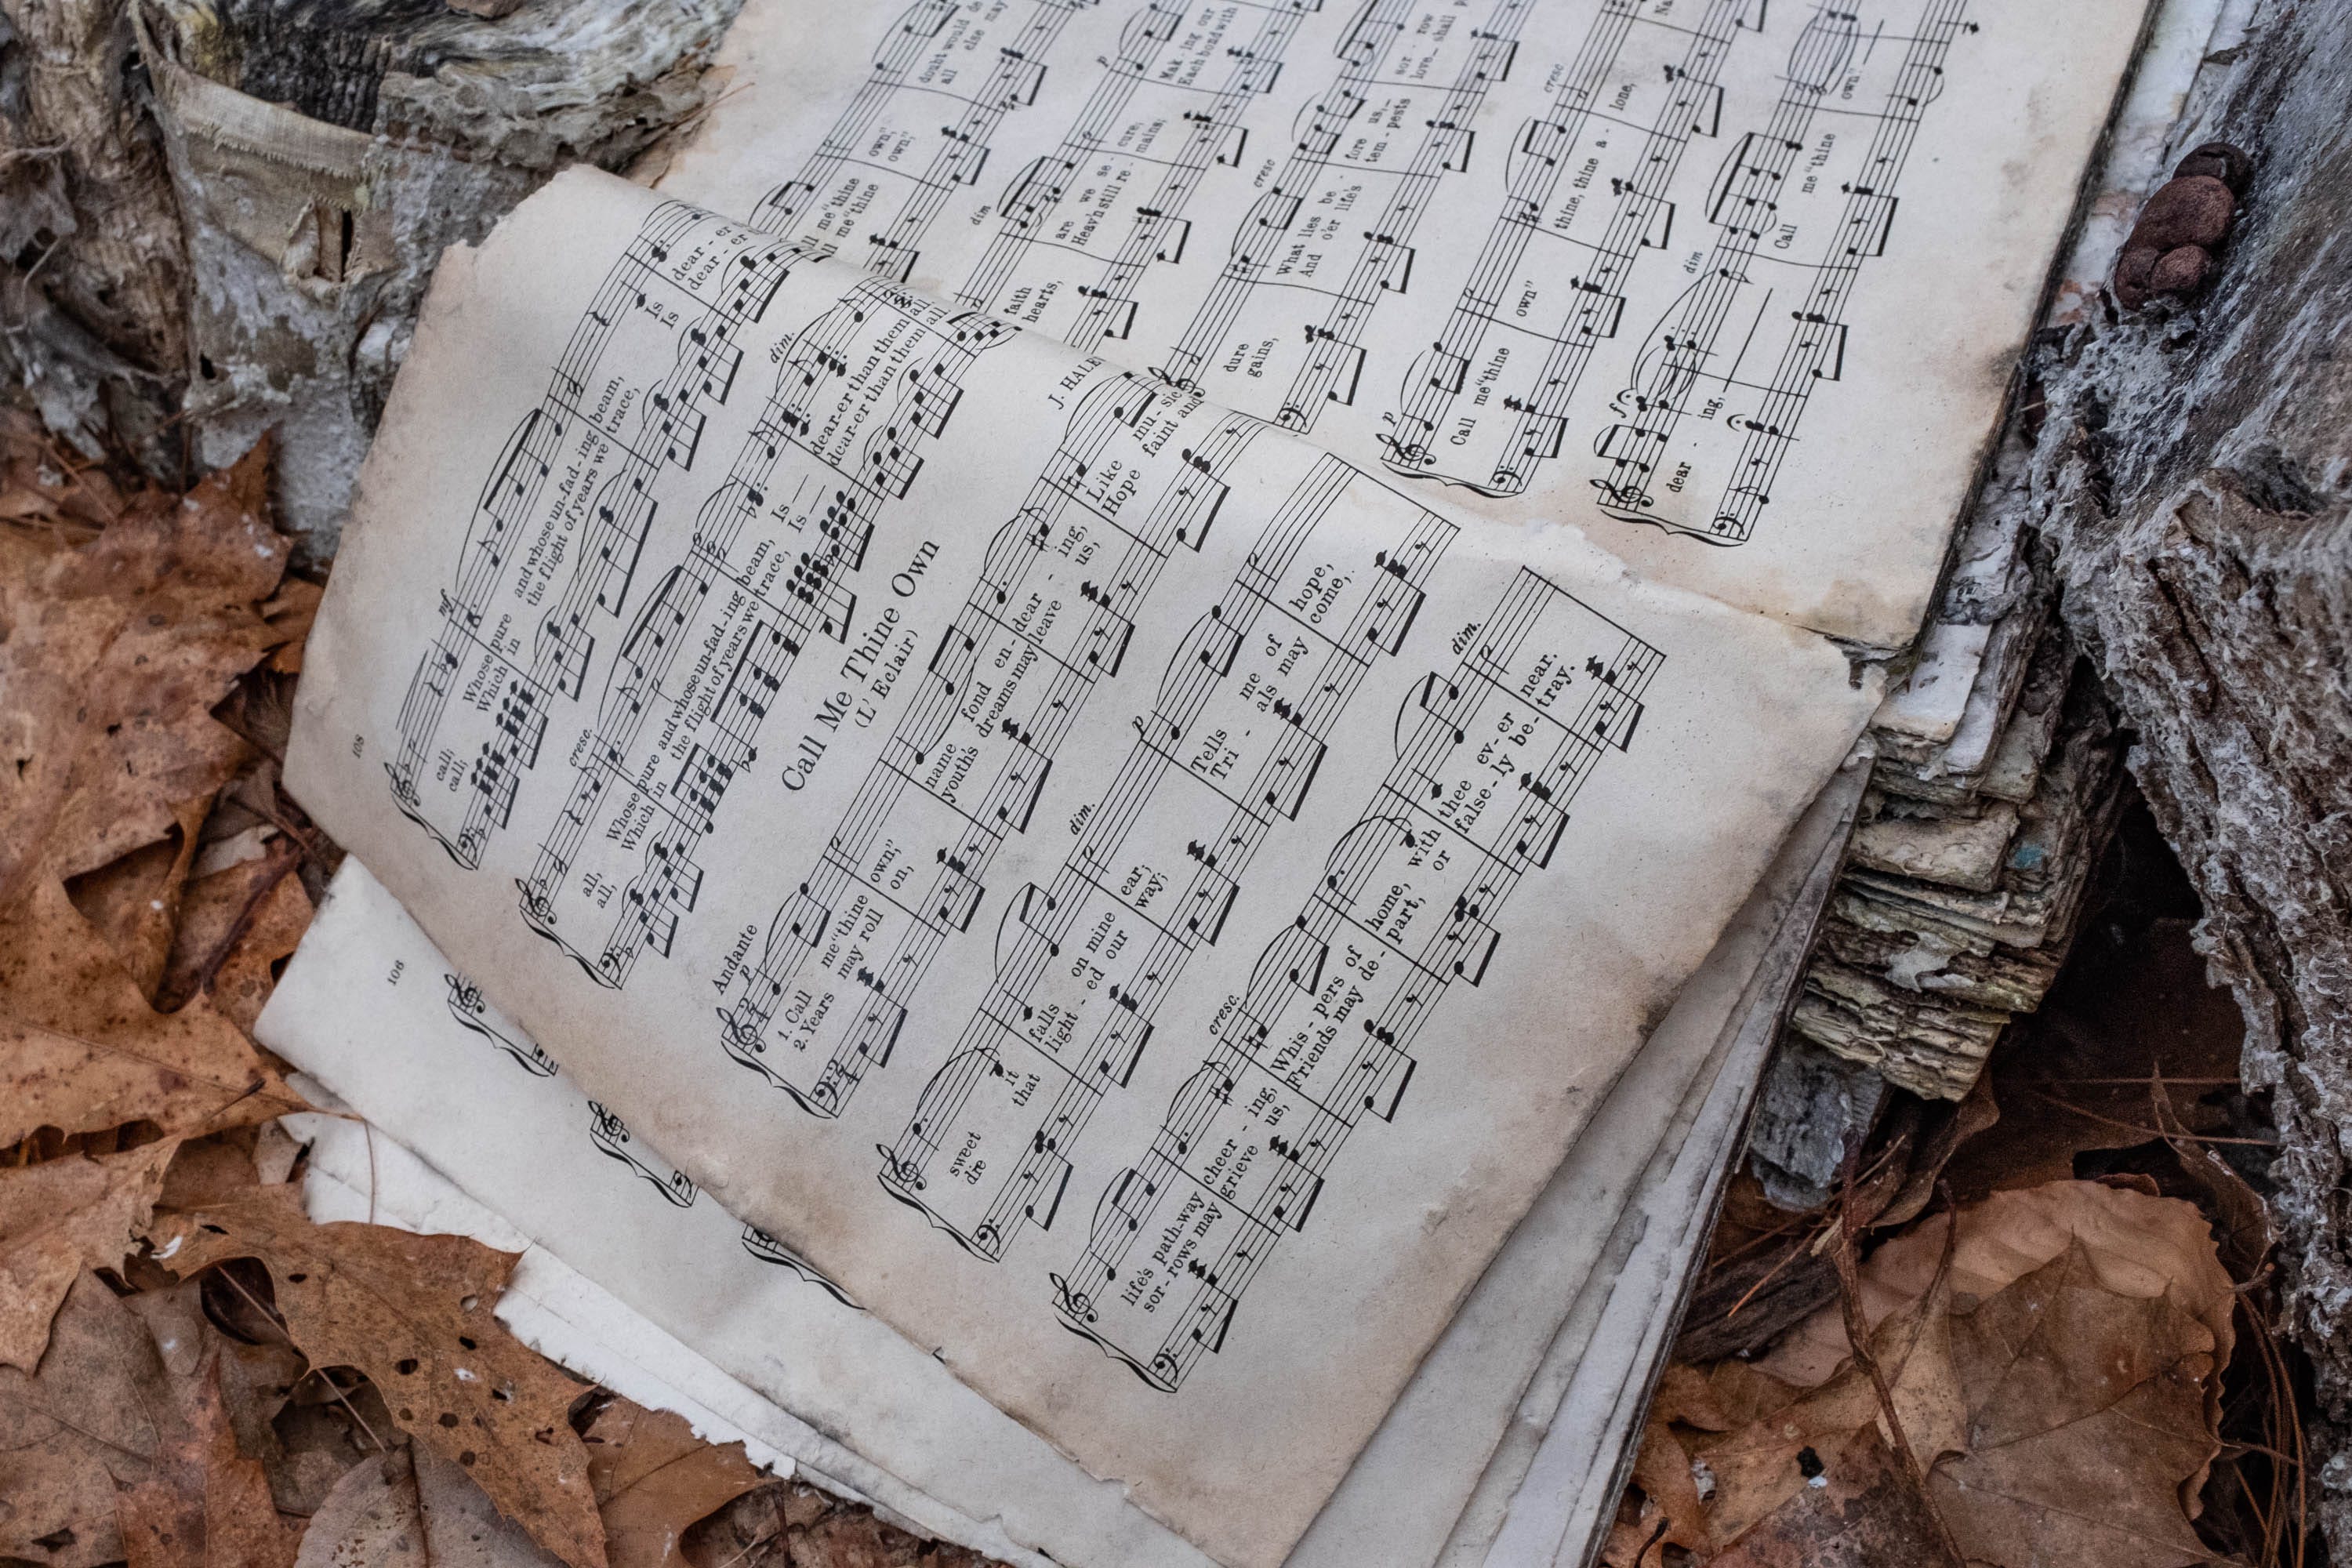 108
fz
call; Whose pure and whose un-fad-ing beam, Is dear-er
call; Which in the flight of years we trace, Is dear-er
cresc. dim.
all, Whose pure and whose un-fad-ing beam, Is dear-er than them all.
all, Which in the flight of years we trace, Is dear-er than them all.
Call Me Thine Own
(L'Eclair)
Andante J. HALE
p
1. Call me "thine own," name fond en-dear-ing, Like mu-sic
2. Years may roll on, youth's dreams may leave us, Hope faint and
dim. p
sweet it falls on mine ear; Tells me of hope,
that light-ed our way; Tri-als may come,
cresc. dim.
life's path-way cheer-ing, Whis-pers of home, with thee ev-er near.
sor-rows may grieve us, Friends may de-part, or false-ly be-tray.
106
me "thine own," doubt would de
me "thine own," all else may
dim p
faith are we se-cure; Mak-ing our
hearts, Heav'n still re-mains; Each bond with
cresc
dure What lies be-fore us, sor-row
gains, And o'er life's tem-pests love shall
p cresc
Call me "thine own" thine, thine a-lone,
f dim
dear-ing, Call me "thine own."